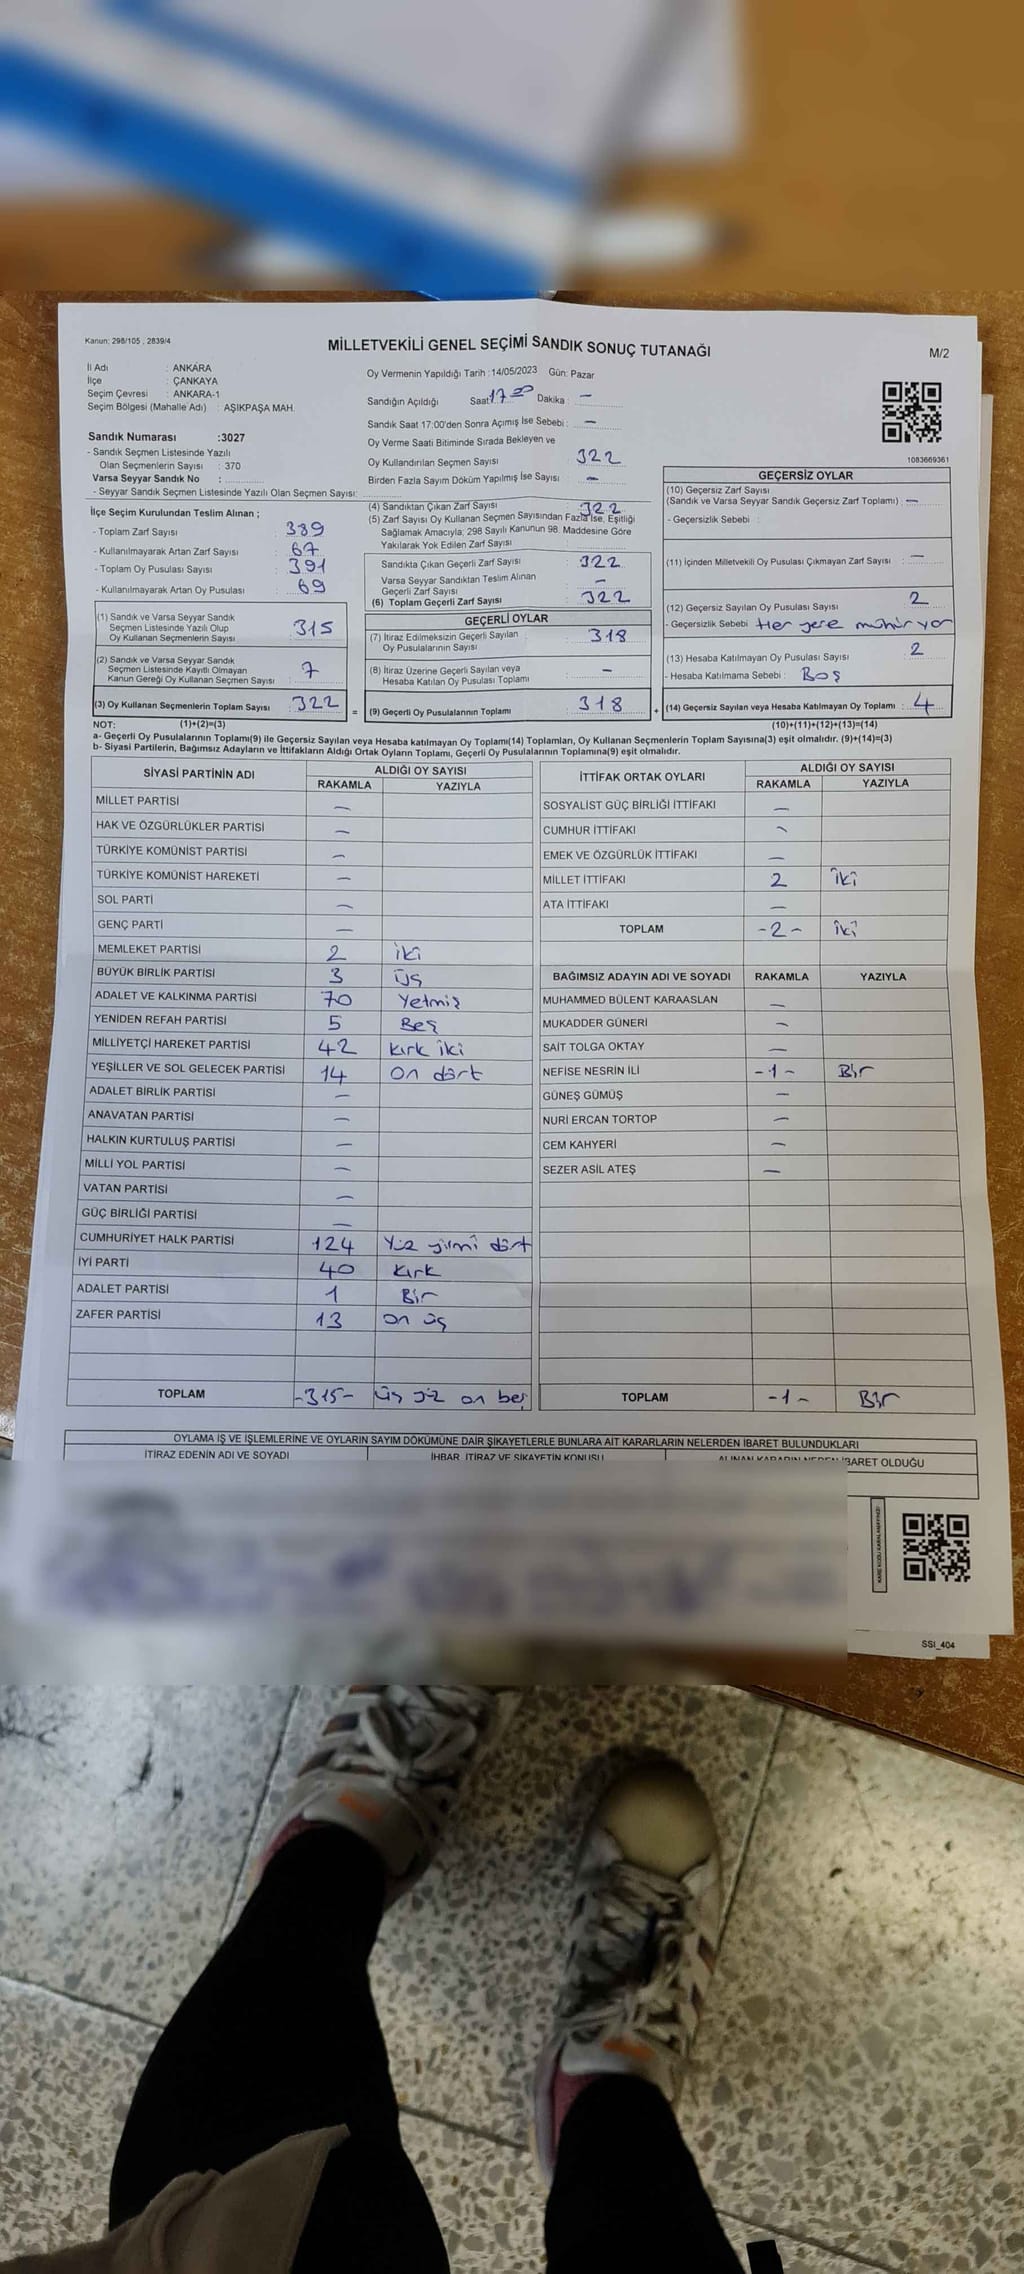 Kanun: 298/105 , 2839/4
MİLLETVEKİLİ GENEL SEÇİMİ SANDIK SONUÇ TUTANAĞI
M/2
İl Adı : ANKARA
İlçe : ÇANKAYA
Seçim Çevresi : ANKARA-1
Seçim Bölgesi (Mahalle Adı) : AŞIKPAŞA MAH.
Sandık Numarası :3027
- Sandık Seçmen Listesinde Yazılı
Olan Seçmenlerin Sayısı : 370
Varsa Seyyar Sandık No :
- Seyyar Sandık Seçmen Listesinde Yazılı Olan Seçmen Sayısı:
Oy Vermenin Yapıldığı Tarih :14/05/2023 Gün: Pazar
Sandığın Açıldığı Saat 17 00 Dakika : -
Sandık Saat 17:00'den Sonra Açımış İse Sebebi : -
Oy Verme Saati Bitiminde Sırada Bekleyen ve
Oy Kullandırılan Seçmen Sayısı : 322
Birden Fazla Sayım Döküm Yapılmış İse Sayısı : -
1083669361
İlçe Seçim Kurulundan Teslim Alınan ;
- Toplam Zarf Sayısı : 389
- Kullanılmayarak Artan Zarf Sayısı : 67
- Toplam Oy Pusulası Sayısı : 391
- Kullanılmayarak Artan Oy Pusulası : 69
(1) Sandık ve Varsa Seyyar Sandık
Seçmen Listesinde Yazılı Olup
Oy Kullanan Seçmenlerin Sayısı : 315
(2) Sandık ve Varsa Seyyar Sandık
Seçmen Listesinde Kayıtlı Olmayan
Kanun Gereği Oy Kullanan Seçmen Sayısı : 7
(3) Oy Kullanan Seçmenlerin Toplam Sayısı : 322
(4) Sandıktan Çıkan Zarf Sayısı : 322
(5) Zarf Sayısı Oy Kullanan Seçmen Sayısından Fazla İse, Eşitliği
Sağlamak Amacıyla; 298 Sayılı Kanunun 98. Maddesine Göre
Yakılarak Yok Edilen Zarf Sayısı :
Sandıkta Çıkan Geçerli Zarf Sayısı : 322
Varsa Seyyar Sandıktan Teslim Alınan
Geçerli Zarf Sayısı : -
(6) Toplam Geçerli Zarf Sayısı : 322
GEÇERLİ OYLAR
(7) İtiraz Edilmeksizin Geçerli Sayılan
Oy Pusulalarının Sayısı : 318
(8) İtiraz Üzerine Geçerli Sayılan veya
Hesaba Katılan Oy Pusulası Toplamı : -
= (9) Geçerli Oy Pusulalarının Toplamı : 318 +
GEÇERSİZ OYLAR
(10) Geçersiz Zarf Sayısı
(Sandık ve Varsa Seyyar Sandık Geçersiz Zarf Toplamı) : -
- Geçersizlik Sebebi :
(11) İçinden Milletvekili Oy Pusulası Çıkmayan Zarf Sayısı : -
(12) Geçersiz Sayılan Oy Pusulası Sayısı : 2
- Geçersizlik Sebebi : Her yere mühür var
(13) Hesaba Katılmayan Oy Pusulası Sayısı : 2
- Hesaba Katılmama Sebebi : Boş
(14) Geçersiz Sayılan veya Hesaba Katılmayan Oy Toplamı : 4
NOT: (1)+(2)=(3) (10)+(11)+(12)+(13)=(14)
a- Geçerli Oy Pusulalarının Toplamı(9) ile Geçersiz Sayılan veya Hesaba katılmayan Oy Toplamı(14) Toplamları, Oy Kullanan Seçmenlerin Toplam Sayısına(3) eşit olmalıdır. (9)+(14)=(3)
b- Siyasi Partilerin, Bağımsız Adayların ve İttifakların Aldığı Ortak Oyların Toplamı, Geçerli Oy Pusulalarının Toplamına(9) eşit olmalıdır.
SİYASİ PARTİNİN ADI ALDIĞI OY SAYISI
RAKAMLA YAZIYLA
MİLLET PARTİSİ -
HAK VE ÖZGÜRLÜKLER PARTİSİ -
TÜRKİYE KOMÜNİST PARTİSİ -
TÜRKİYE KOMÜNİST HAREKETİ -
SOL PARTİ -
GENÇ PARTİ -
MEMLEKET PARTİSİ 2 iki
BÜYÜK BİRLİK PARTİSİ 3 üç
ADALET VE KALKINMA PARTİSİ 70 Yetmiş
YENİDEN REFAH PARTİSİ 5 Beş
MİLLİYETÇİ HAREKET PARTİSİ 42 kırk iki
YEŞİLLER VE SOL GELECEK PARTİSİ 14 on dört
ADALET BİRLİK PARTİSİ -
ANAVATAN PARTİSİ -
HALKIN KURTULUŞ PARTİSİ -
MİLLİ YOL PARTİSİ -
VATAN PARTİSİ -
GÜÇ BİRLİĞİ PARTİSİ -
CUMHURİYET HALK PARTİSİ 124 Yüz yirmi dört
İYİ PARTİ 40 kırk
ADALET PARTİSİ 1 Bir
ZAFER PARTİSİ 13 on üç
TOPLAM -315- üç yüz on beş
İTTİFAK ORTAK OYLARI ALDIĞI OY SAYISI
RAKAMLA YAZIYLA
SOSYALİST GÜÇ BİRLİĞİ İTTİFAKI -
CUMHUR İTTİFAKI -
EMEK VE ÖZGÜRLÜK İTTİFAKI -
MİLLET İTTİFAKI 2 iki
ATA İTTİFAKI -
TOPLAM -2- iki
BAĞIMSIZ ADAYIN ADI VE SOYADI RAKAMLA YAZIYLA
MUHAMMED BÜLENT KARAASLAN -
MUKADDER GÜNERİ -
SAİT TOLGA OKTAY -
NEFİSE NESRİN İLİ -1- Bir
GÜNEŞ GÜMÜŞ -
NURİ ERCAN TORTOP -
CEM KAHYERİ -
SEZER ASİL ATEŞ -
TOPLAM -1- Bir
OYLAMA İŞ VE İŞLEMLERİNE VE OYLARIN SAYIM DÖKÜMÜNE DAİR ŞİKAYETLERLE BUNLARA AİT KARARLARIN NELERDEN İBARET BULUNDUKLARI
İTİRAZ EDENİN ADI VE SOYADI İHBAR, İTİRAZ VE ŞİKAYETİN KONUSU ALINAN KARARIN NEDEN İBARET OLDUĞU
SSI_404